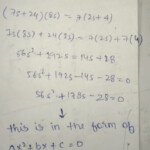 (7s+24)(8s) = 7(2s+4)
7s(8s) + 24(8s) = 7(2s) + 7(4)
56s² + 192s = 14s + 28
56s² + 192s - 14s - 28 = 0
56s² + 178s - 28 = 0
↓
this is in the form of
ax² + bx + c = 0